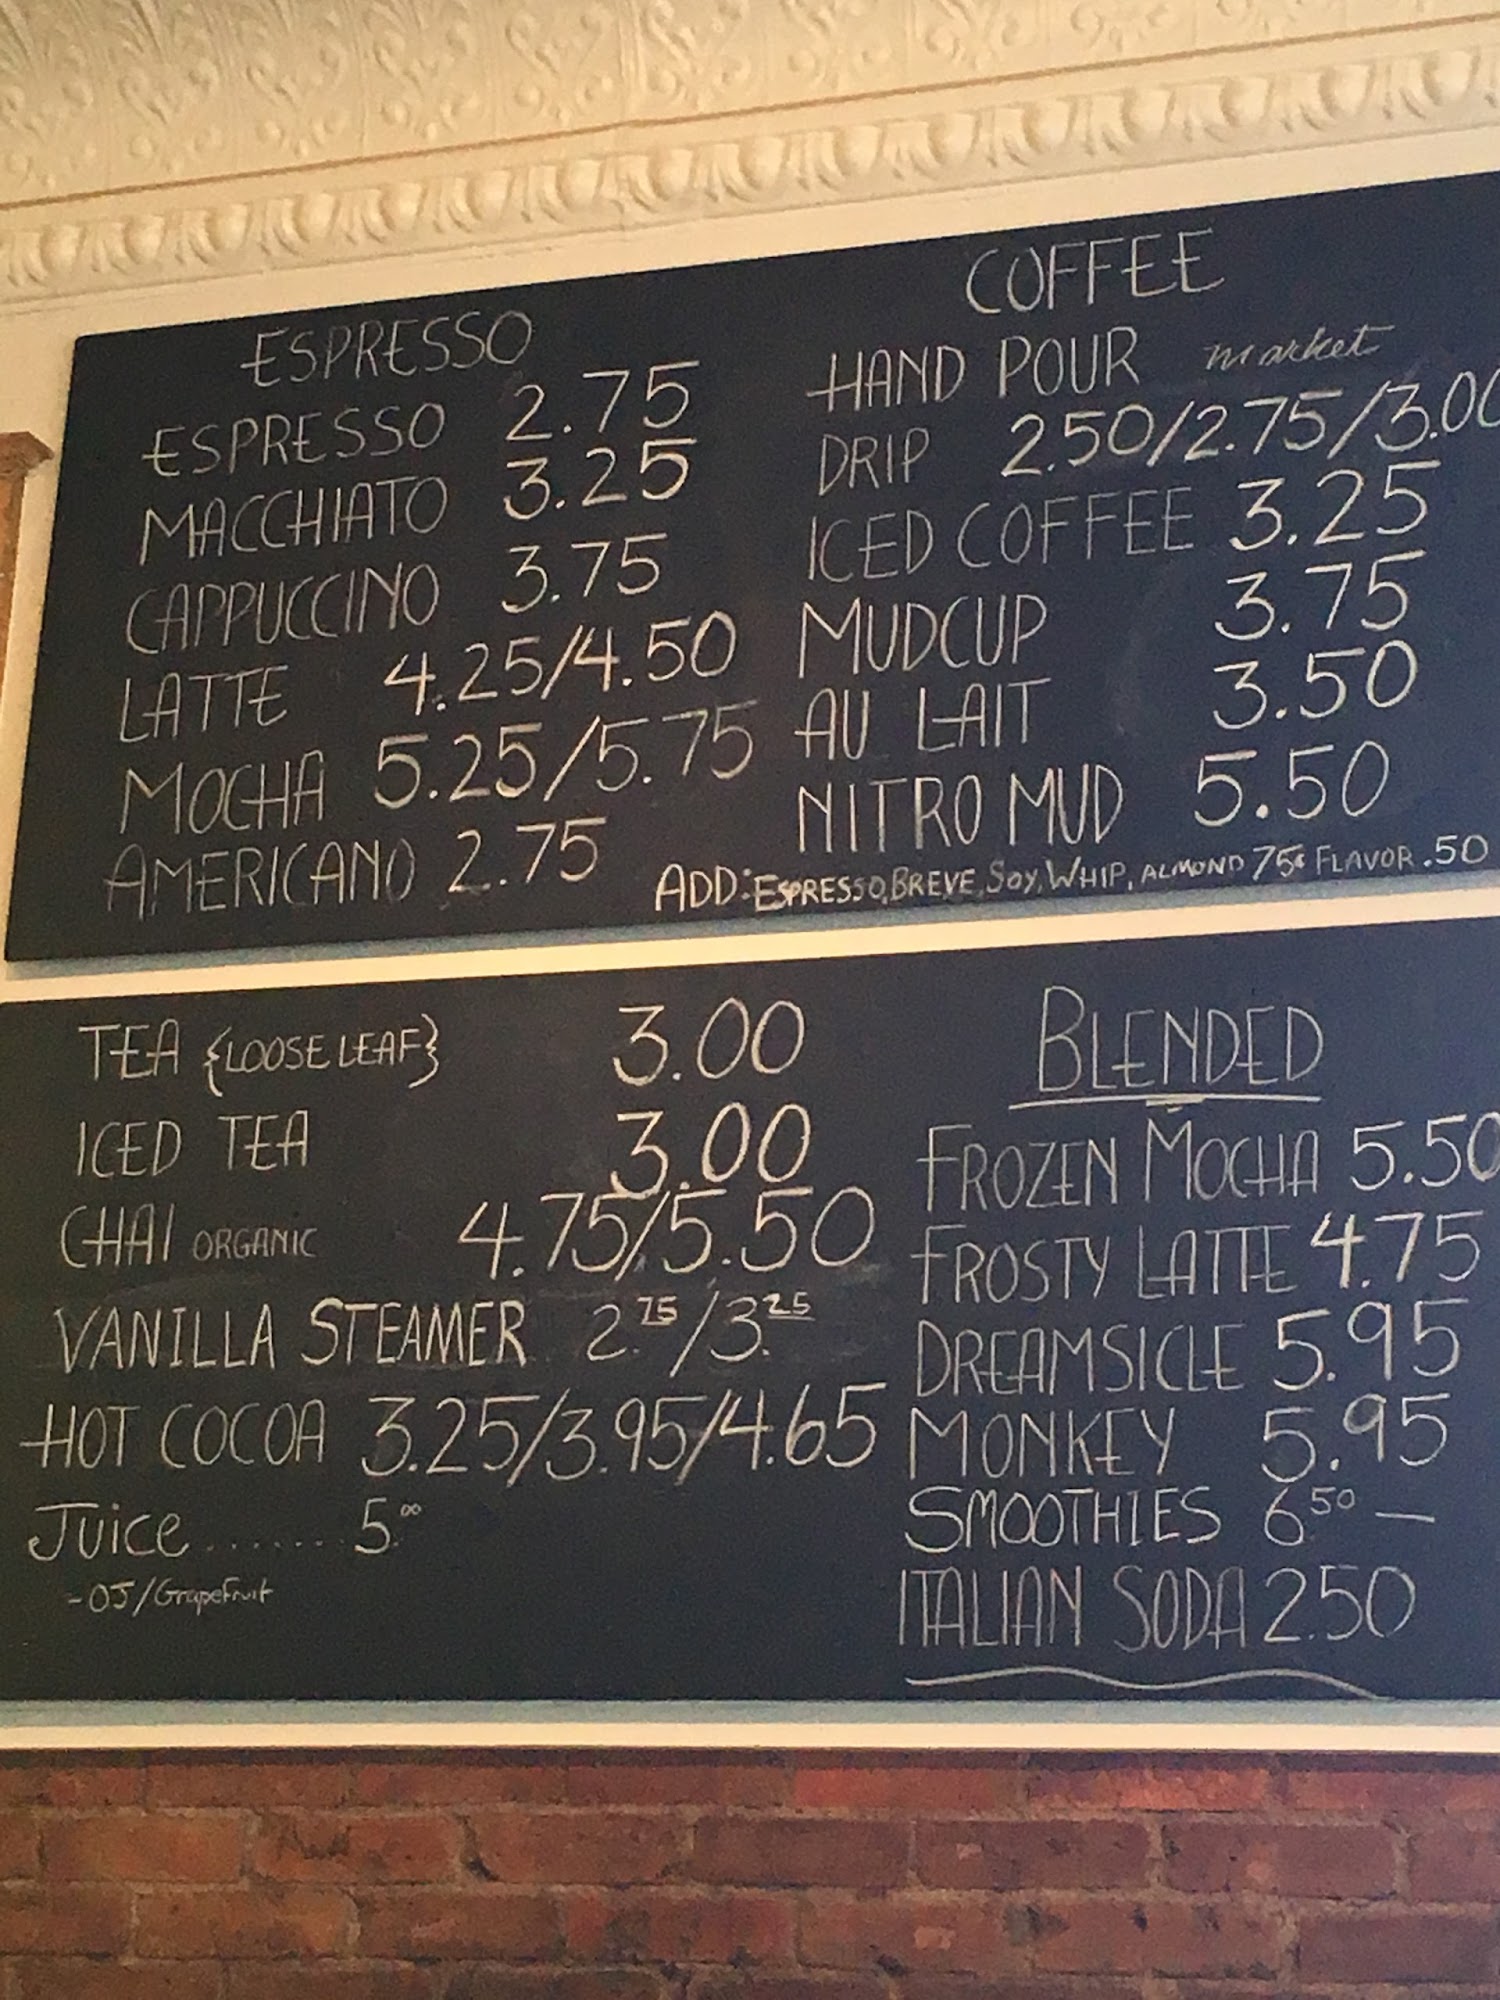 ESPRESSO
ESPRESSO 2.75
MACCHIATO 3.25
CAPPUCCINO 3.75
LATTE 4.25/4.50
MOCHA 5.25/5.75
AMERICANO 2.75
COFFEE
HAND POUR market
DRIP 2.50/2.75/3.00
ICED COFFEE 3.25
MUDCUP 3.75
AU LAIT 3.50
NITRO MUD 5.50
ADD: ESPRESSO, BREVE, SOY, WHIP, ALMOND 75¢ FLAVOR .50
TEA {LOOSE LEAF} 3.00
ICED TEA 3.00
CHAI ORGANIC 4.75/5.50
VANILLA STEAMER 2.75/3.25
HOT COCOA 3.25/3.95/4.65
Juice ....... 5.00
- OJ/Grapefruit
BLENDED
FROZEN MOCHA 5.50
FROSTY LATTE 4.75
DREAMSICLE 5.95
MONKEY 5.95
SMOOTHIES 6.50 —
ITALIAN SODA 2.50